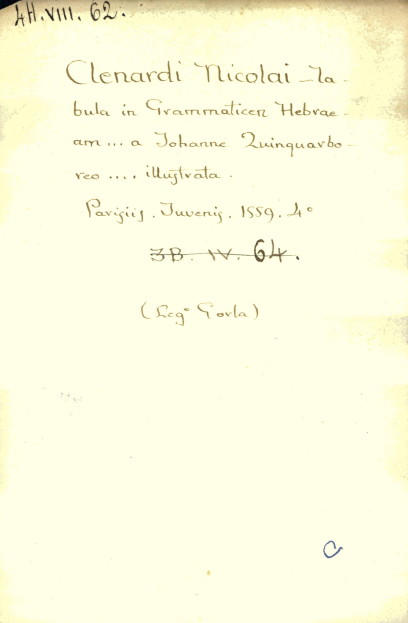 4H.VIII. 62.
Clenardi Nicolai - Ta-
bula in Grammaticen Hebrae-
am... a Johanne Quinquarbo-
reo .... illustrata.
Parisiis. Juvenis. 1559. 4°
3B. IV. 64.
(Leg° Gorla)
C